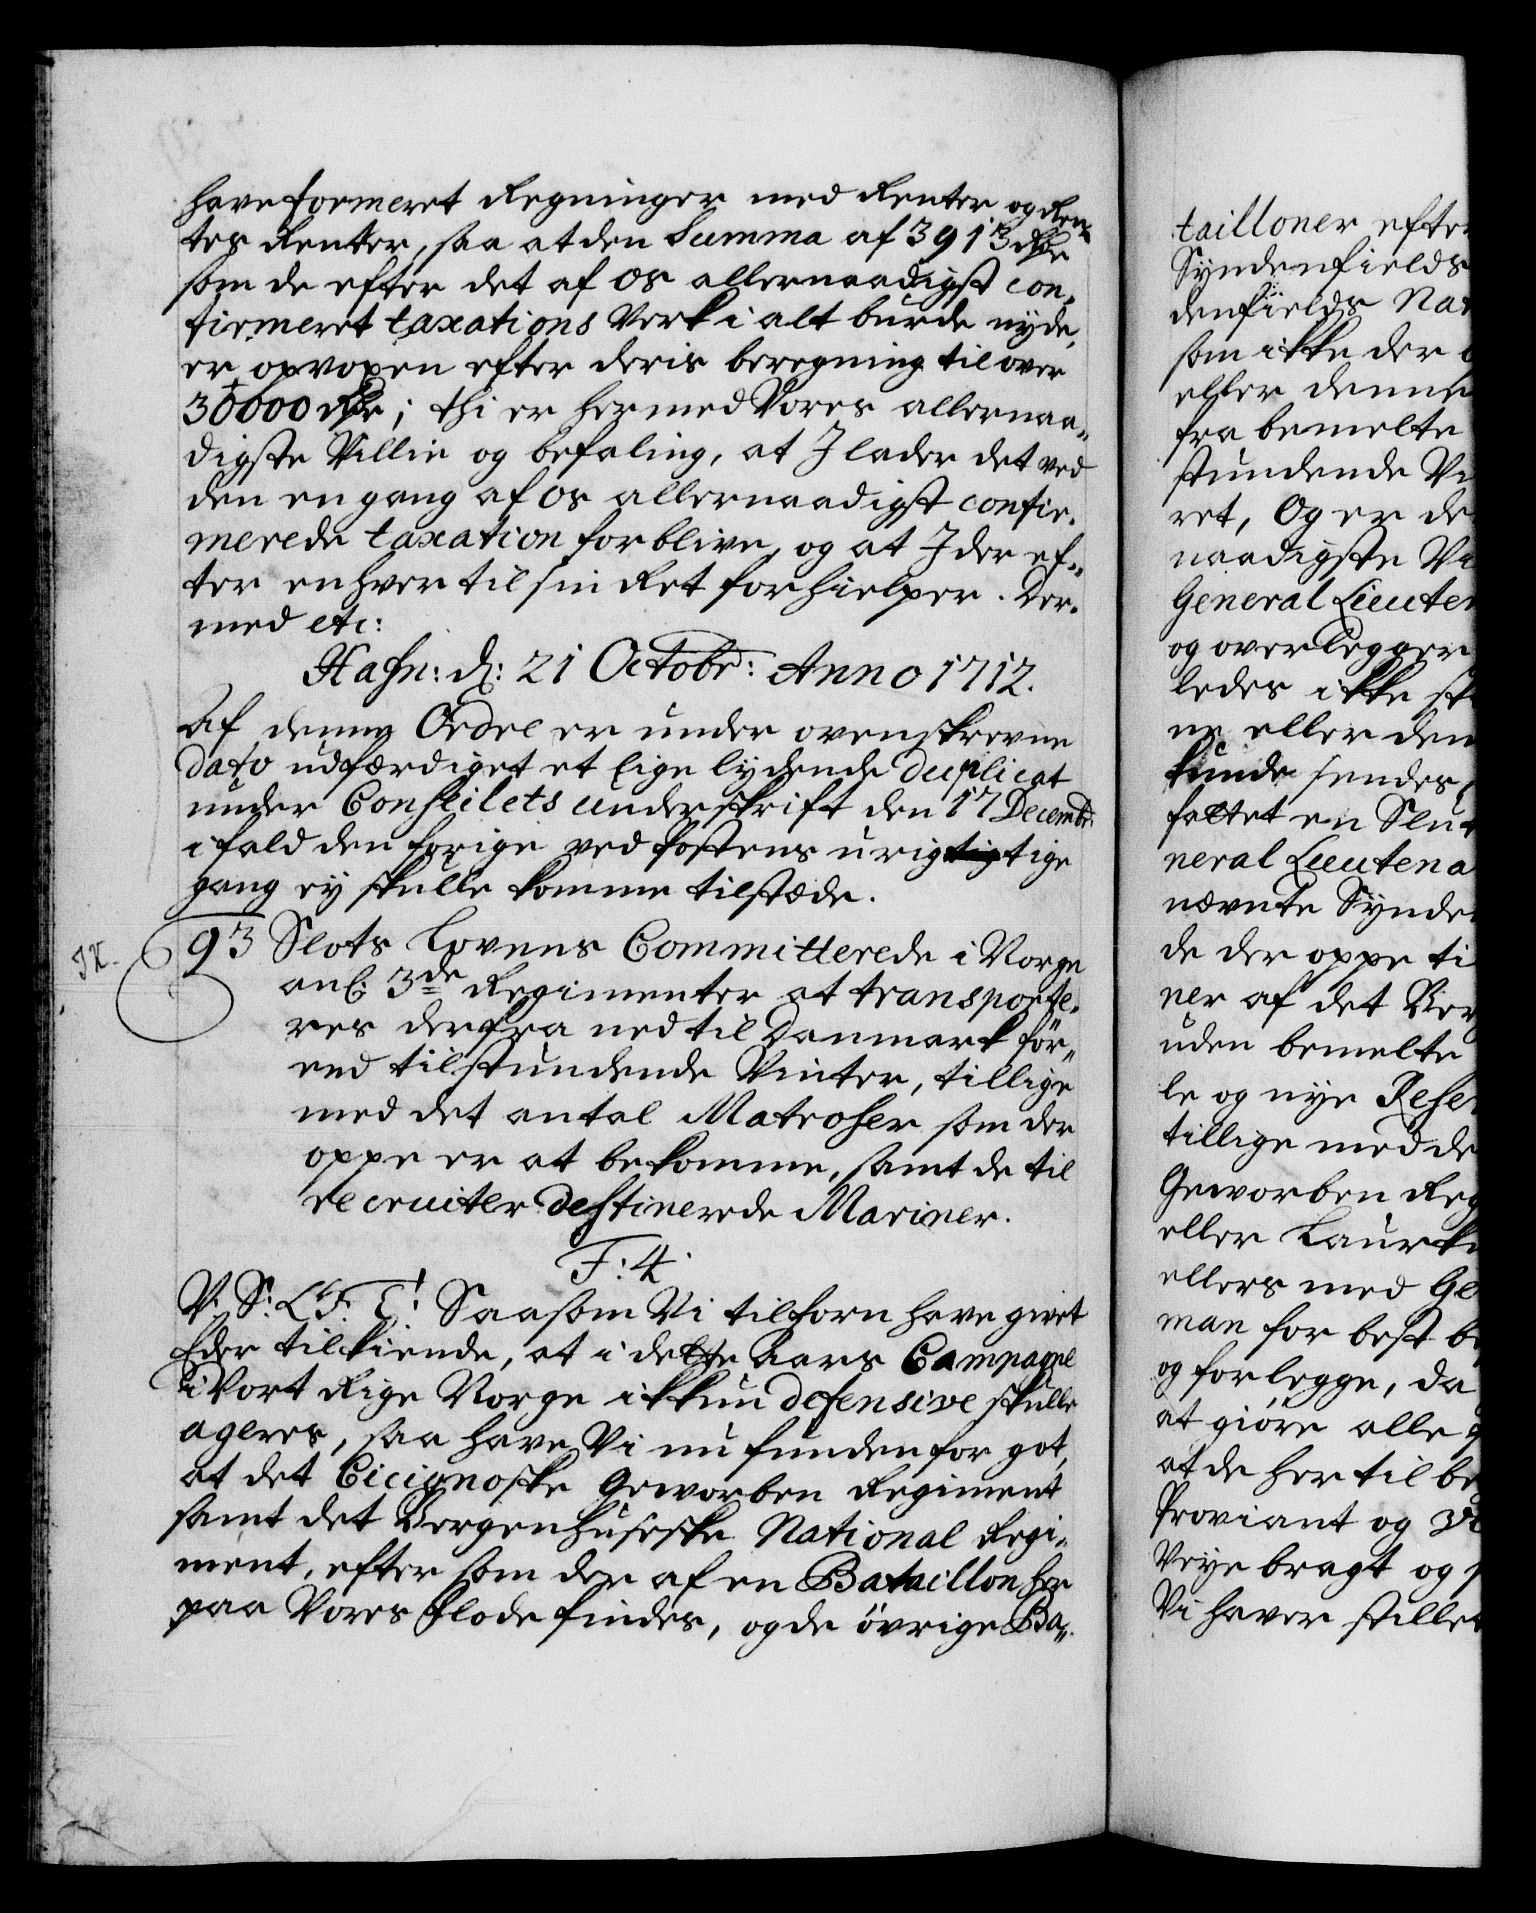 have formeret Regninger med Renter og Ren-
tes Renter, saa at den Summa af 3913 Rdr
som de efter det af os allernaadigst con-
firmeret taxations Verk i alt burde nyde,
er opvoxen efter deris beregning til over
30000 Rdr; thi er hermed Vores allernaa-
digste Villie og befaling, at I lader det ved
den en gang af os allernaadigst confir-
merede taxation forblive, og at I der ef-
ter enhver til sin Ret forhielper. Der-
med etc:
Hafn: d: 21 Octobr: Anno 1712.
Af denne Ordre er under ovenskrevne
dato udfærdiget et lige lydende duplicat
under Conseilets underskrift den 17 Decembr:
ifald den forige ved Postens urigtige
gang ey skulle komme tilstæde.
93 Slots Lovens Committerede i Norge
anl: 3de Regimenter at transporte-
res derfra ned til Danmark för-
end tilstundende Vinter, tillige
med det antal Matroser som der
oppe er at bekomme, samt de til
recruiter destinerede Mariner.
F: 4.
V. S: G. T! Saasom Vi tilforn have givet
Eder tilkiende, at i dette Aars Campagne
i Vort Rige Norge ikkun defensive skulle
ageres, saa have Vi nu funden for got,
at det Cicignoske Geworben Regiment
samt det Bergenhusiske National Regi-
ment, efter som der af en Bataillon her
paa Vores Flode findes, og de övrige Ba-
tailloner efter
Syndenfields
denfields Nat
som ikke der
eller denne
fra bemelte
stundende Vi
ret, Og er de
naadigste Vi
General Lieuten
og overlegger
ledes ikke sk
ne eller den
kunde sendes,
fattet en Slut
neral Lieutena
nævnte Synde
de der oppe ti
ner af det Ber
uden bemelte
le og nye Reser
tillige med de
Geworben Reg
eller Laurk
ellers med Ge
man for best be
og forlegge, da
at giöre alle
at de her til be
Proviant og
Veye bragt og
Vi haver stillet